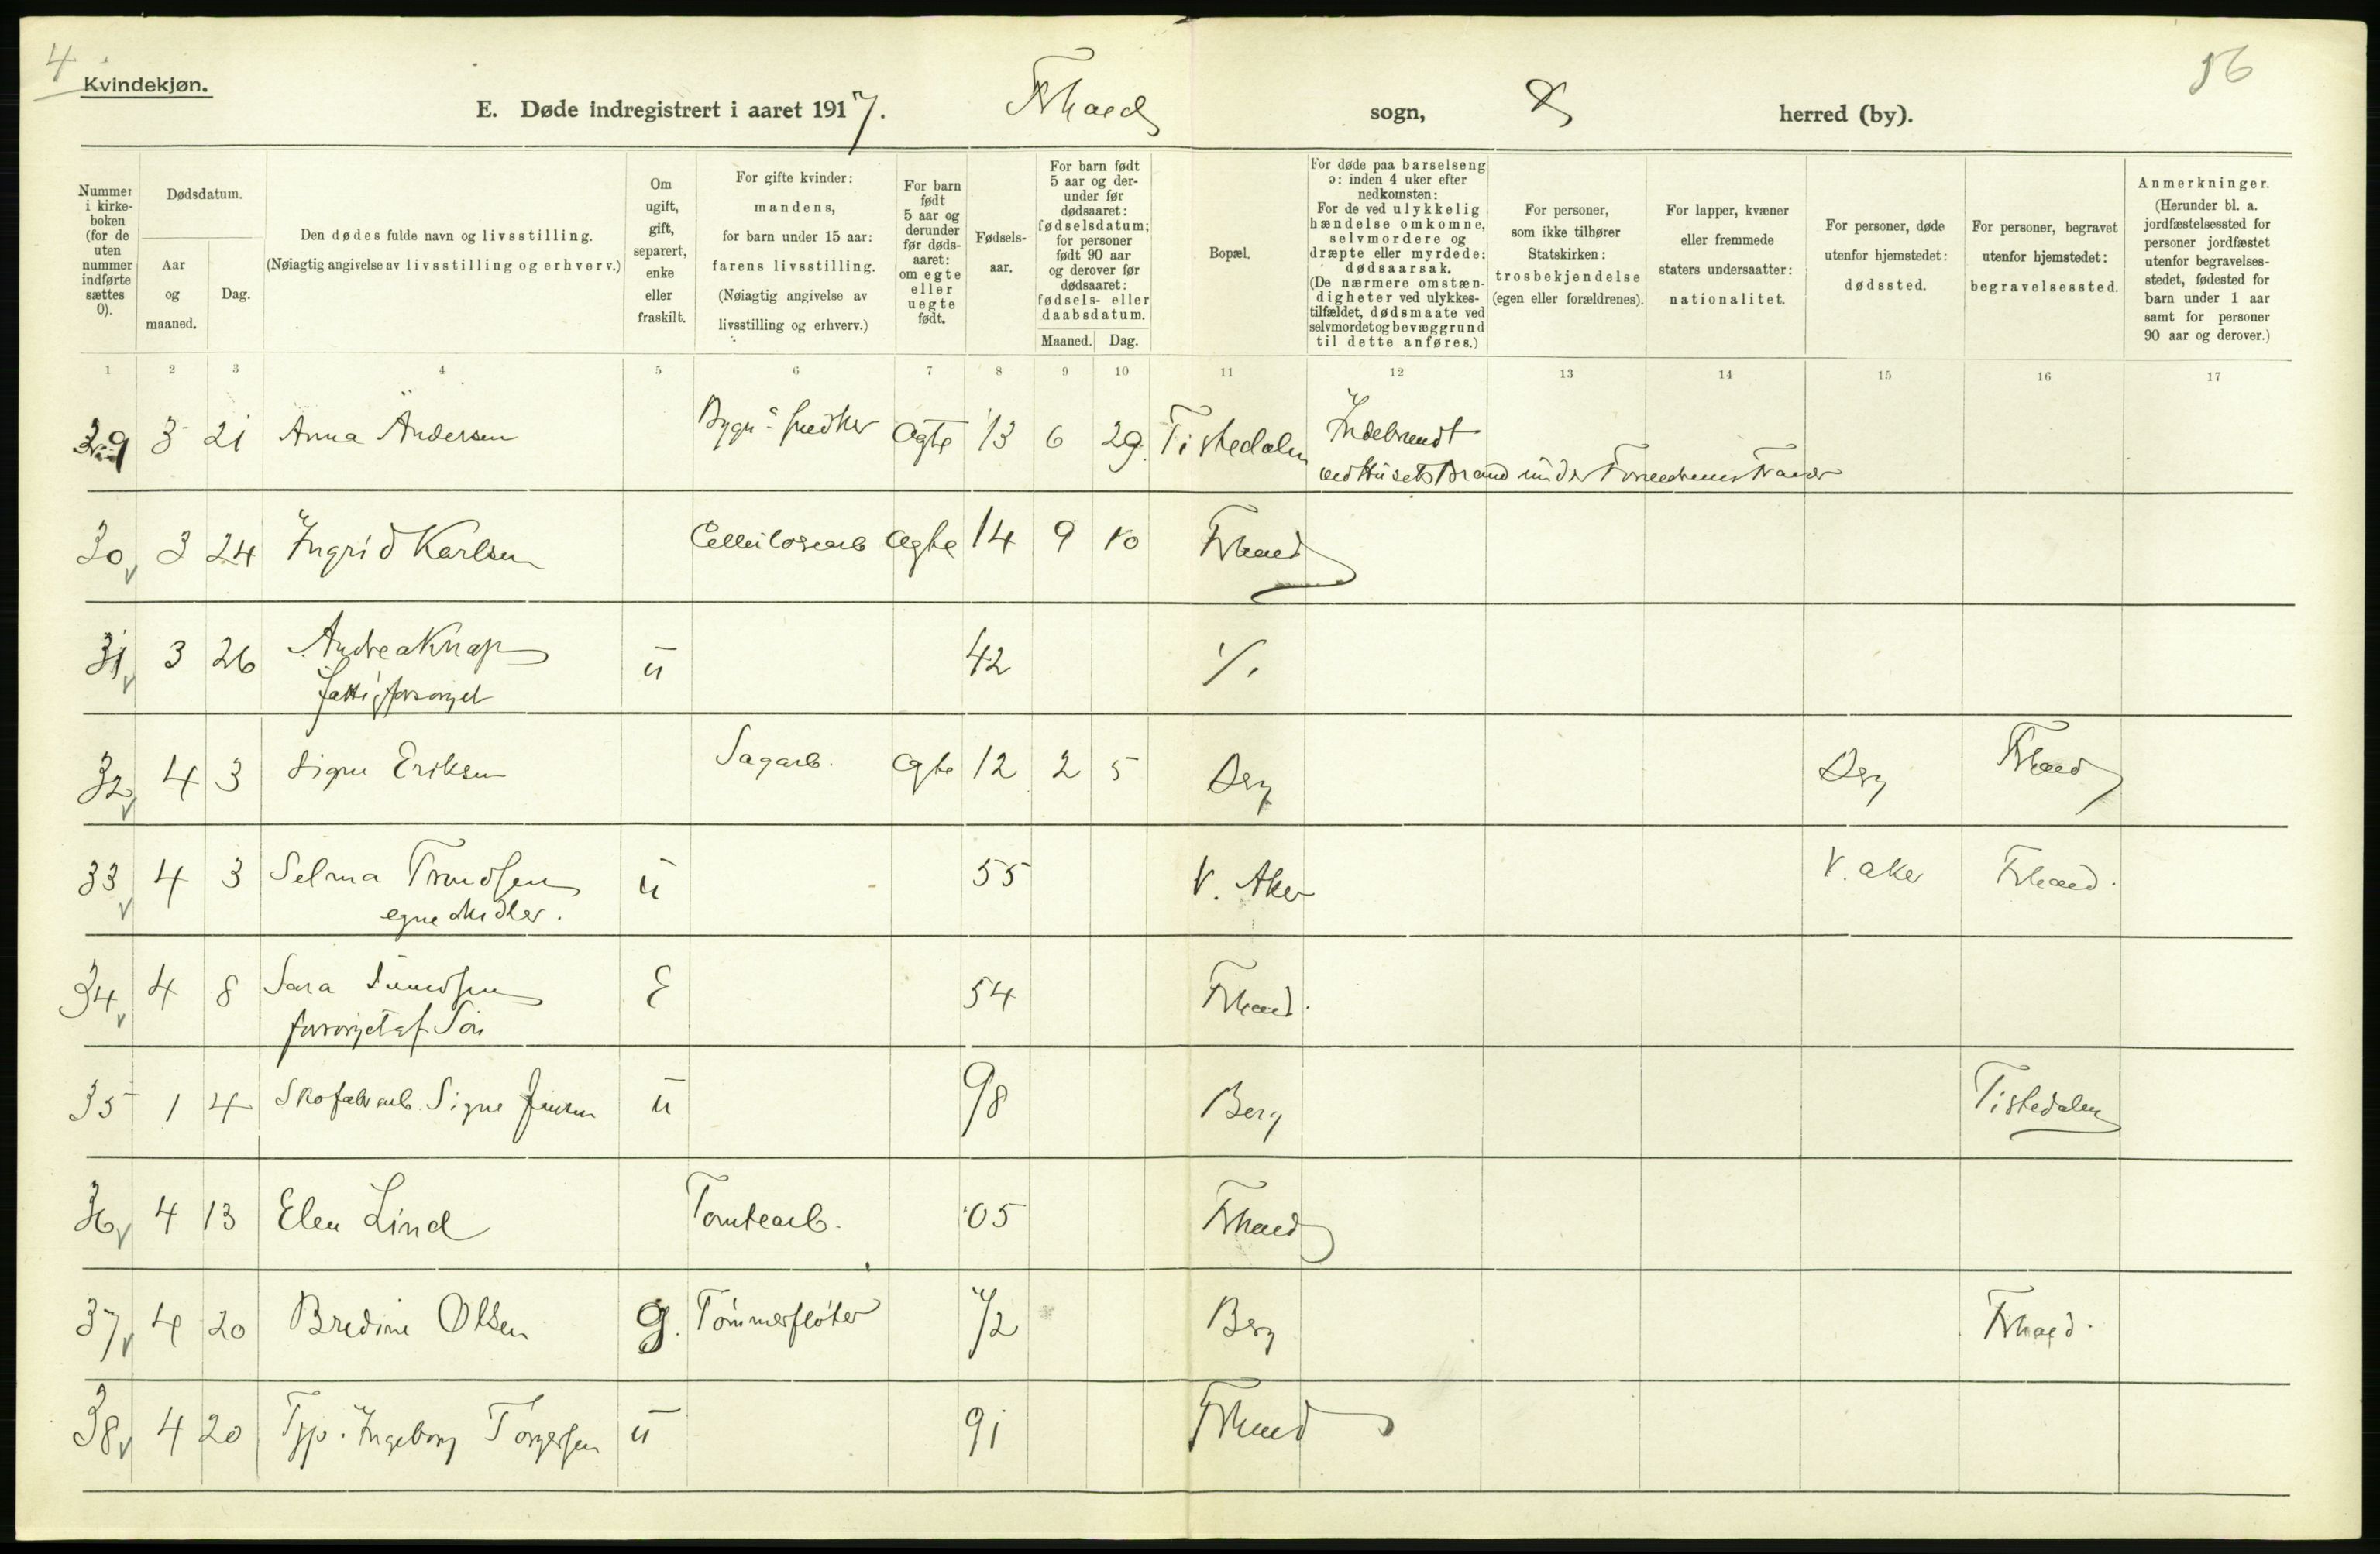 4
Kvindekjøn.
56
E. Døde indregistrert i aaret 1917. Frhald sogn, herred (by).
Nummer i kirke-boken (for de uten nummer indførte sættes 0).
Dødsdatum.
Aar og maaned.
Dag.
Den dødes fulde navn og livsstilling.
(Nøiagtig angivelse av livsstilling og erhverv.)
Om ugift, gift, separert, enke eller fraskilt.
For gifte kvinder: mandens, for barn under 15 aar: farens livsstilling. (Nøiagtig angivelse av livsstilling og erhverv.)
For barn født 5 aar og derunder før døds-aaret: om egte eller uegte født.
Fødsels-aar.
For barn født 5 aar og der-under før dødsaaret: fødselsdatum; for personer født 90 aar og derover før dødsaaret: fødsels- eller daabsdatum.
Maaned. Dag.
Bopæl.
For døde paa barselseng ɔ: inden 4 uker efter nedkomsten: For de ved ulykkelig hændelse omkomne, selvmordere og dræpte eller myrdede: dødsaarsak. (De nærmere omstæn-digheter ved ulykkes-tilfældet, dødsmaate ved selvmordet og bevæggrund til dette anføres.)
For personer, som ikke tilhører Statskirken: trosbekjendelse (egen eller forældrenes).
For lapper, kvæner eller fremmede staters undersaatter: nationalitet.
For personer, døde utenfor hjemstedet: dødssted.
For personer, begravet utenfor hjemstedet: begravelsessted.
Anmerkninger. (Herunder bl. a. jordfæstelsessted for personer jordfæstet utenfor begravelses-stedet, fødested for barn under 1 aar samt for personer 90 aar og derover.)
1 2 3 4 5 6 7 8 9 10 11 12 13 14 15 16 17
29 3 21 Anna Andersen Bygn.snedker Ægte 13 6 29. Tistedalen Indebrendt
ved Husets Brand under Forældrenes Fravær
30 3 24 Ingrid Karlsen Cellulosearb Ægte 14 9 10 Frhald
31 3 26 Andrea Knap u 42 "/.
fattigforsørget
32 4 3 Signe Eriksen Sagarb. Ægte 12 2 5 Berg Berg Frhald
33 4 3 Selma Trondsen u 55 V. Aker V. aker Frhald.
egne Midler.
34 4 8 Sara E 54 Frhald.
forsørget af Søn
35 1 4 Skofabr arb. Signe Jensen u 98 Berg Tistedalen
36 4 13 Elen Lind Tomtearb. 05 Frhald
37 4 20 Bredine Olsen g. Tømmerfløter 72 Berg Frhald.
38 4 20 Typ. Ingeborg Torgersen u 91 Frhald